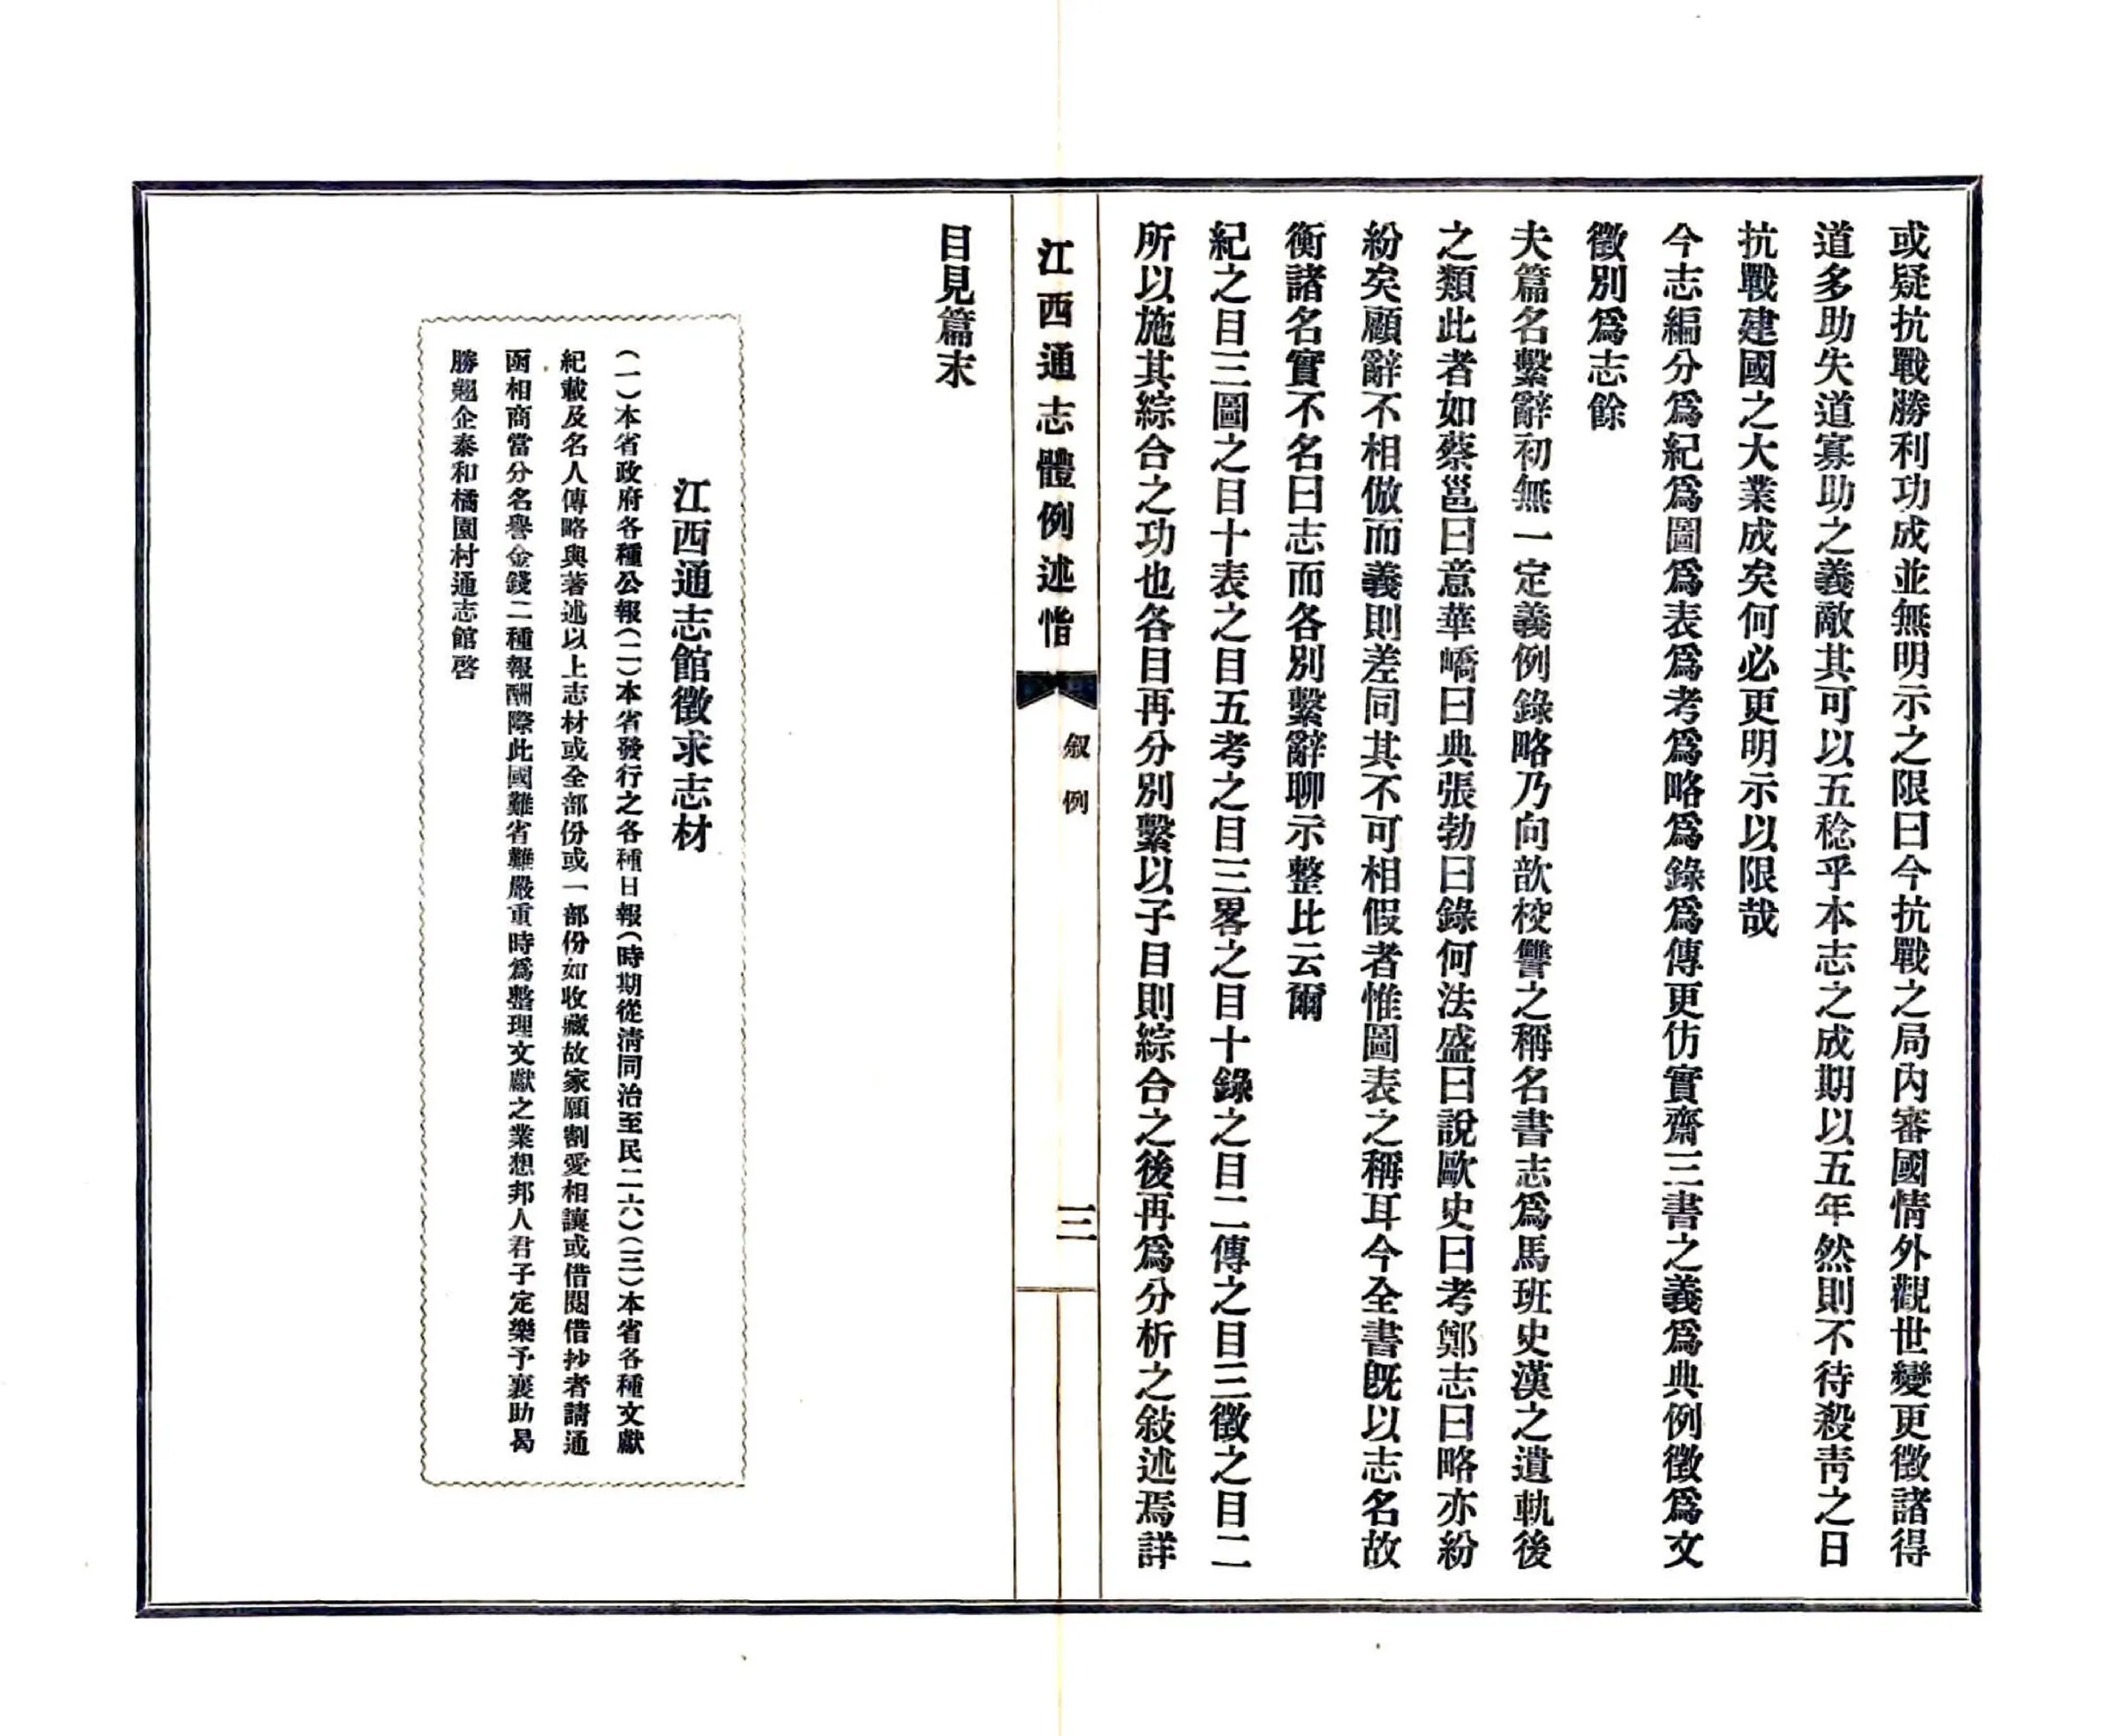 或疑抗戰勝利功成並無明示之限曰今抗戰之局內審國情外觀世變更徵諸得
道多助失道寡助之義敵其可以五稔乎本志之成期以五年然則不待殺靑之日
抗戰建國之大業成矣何必更明示以限哉
今志編分爲紀爲圖爲表爲考爲略爲錄爲傳更仿實齋三書之義爲典例徵爲文
徵別爲志餘
夫篇名繫辭初無一定義例錄略乃向歆校讐之稱名書志爲馬班史漢之遺軌後
之類此者如蔡邕曰意華嶠曰典張勃曰錄何法盛曰說歐史曰考鄭志曰略亦紛
紛矣顧辭不相倣而義則差同其不可相假者惟圖表之稱耳今全書旣以志名故
衡諸名實不名曰志而各別繫辭聊示整比云爾
紀之目三圖之目十表之目五考之目三畧之目十錄之目二傳之目三徵之目二
所以施其綜合之功也各目再分別繫以子目則綜合之後再爲分析之敍述焉詳
江西通志體例述恉
敘例
三
目見篇末
江西通志館徵求志材
（一）本省政府各種公報（二）本省發行之各種日報（時期從淸同治至民二六）（三）本省各種文獻
紀載及名人傳略與著述以上志材或全部份或一部份如收藏故家願割愛相讓或借閱借抄者請通
函相商當分名譽金錢二種報酬際此國難省難嚴重時爲整理文獻之業想邦人君子定樂予襄助曷
勝翹企泰和橘園村通志館啓